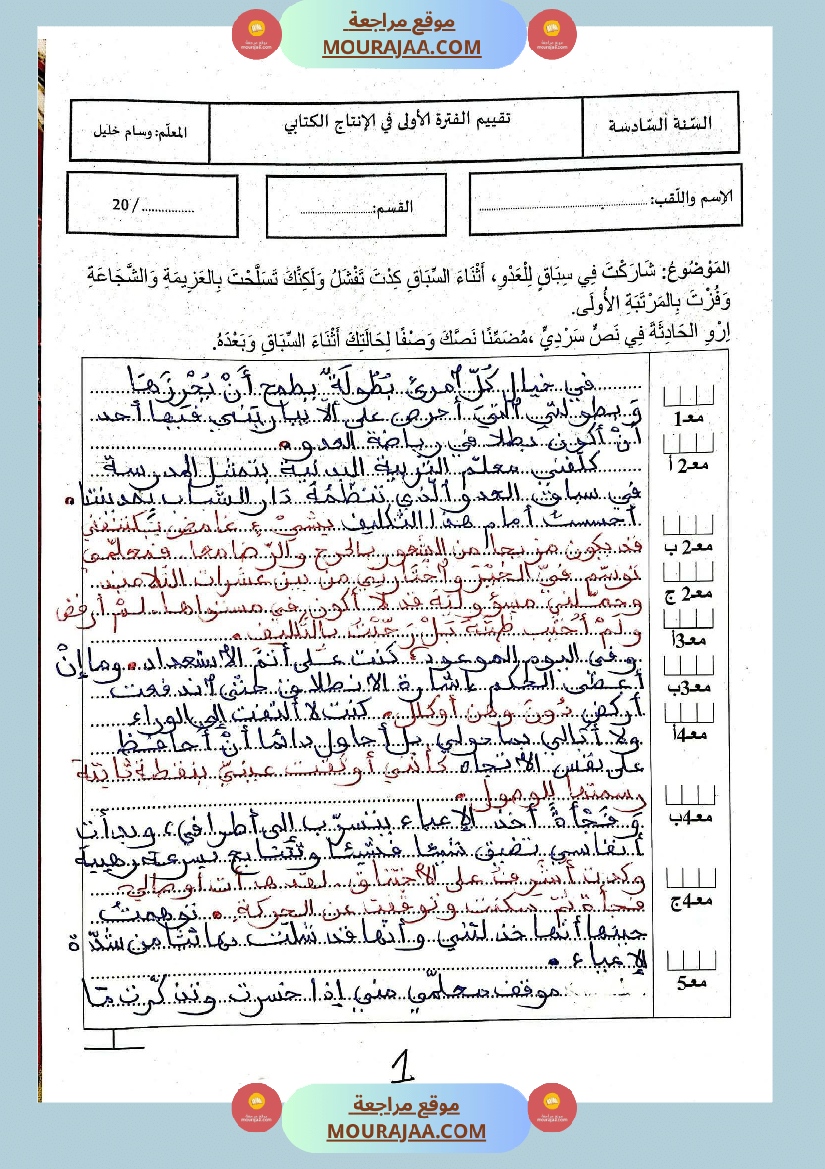 موقع مراجعة
MOURAJAA.COM
السّنة السّادسة
تقييم الفترة الأولى في الإنتاج الكتابي
المعلّم: وسام خليل
الاسم واللّقب: ..............................
القسم: ....................
............... / 20
المَوْضُوعُ: شَارَكْتَ فِي سِبَاقٍ لِلْعَدْوِ، أَثْنَاءَ السِّبَاقِ كِدْتَ تَفْشَلُ وَلَكِنَّكَ تَسَلَّحْتَ بِالعَزِيمَةِ وَالشَّجَاعَةِ
وَفُزْتَ بِالمَرْتَبَةِ الأُولَى.
اِرْوِ الحَادِثَةَ فِي نَصٍّ سَرْدِيٍّ ،مُضَمِّنًا نَصَّكَ وَصْفًا لِحَالَتِكَ أَثْنَاءَ السِّبَاقِ وَبَعْدَهُ.
في خيال كُلّ امرئ بُطُولَةٌ يطمح أَنْ يُحْرِزَهَا
وَبطولتي الّتي أحرص على ألا يباريني فيها أحد
أنْ أكون بطلا في رياضة العدو.
كلّفني معلّم التربية البدنية بتمثيل المدرسة
في سباق العدو الّذي تنظّمهُ دَار الشّباب بمدينتنا.
أحسست أمام هذا التكليف بشيْءٍ غامض يكتنفني
قد يكون مزيجا من الشعور بالحرج والرّضا معا. فمعلّمي
توسّم فيّ الخَيْرَ وَاخْتَارني من بين عشرات التلاميذ
وحمّلني مسؤوليّة قد لا أكون في مستواها. لمْ أرفض
ولَمْ أُخَيّب ظنّهُ بَلْ رَحَّبْتُ بالتّكليف.
وفي اليوم الموعود، كنت على أتمّ الاستعداد. وما إنْ
أعطى الحكم إشارة الانطلاق حتّى اندفعت
أركض دُونَ وهن أوكلل. كنت لا ألتفت إلى الوراء
ولا أبالي بما حولي بل أحاول دائما أنْ أحافظ
على نفس الاتجاه كأنّني أوثقت عينيّ بنقطة ثابتة
رسمتها الوصول.
وَفَجْأةً أخذ الإعياء يتسرّب إلى أطرافي، وبدأت
أنفاسي تضيق شيئا فشيئا وتتتابع بسرعة رهيبة
وكدت أُشْرِفُ على الاختناق. لقد هدأت أوصالي
فجأة ثمّ سكنت وتوقّفت عن الحركة. توهمتُ
حينها أنّها خذلتني وأنّها قد شلّت نهائيّا من شدّة
الإعياء.
موقف معلّمي مني إذا خسرت وتذكّرت مَا
معـ1
معـ2 أ
معـ2 ب
معـ2 ج
معـ3أ
معـ3ب
معـ4أ
معـ4ب
معـ4ج
معـ5
1
موقع مراجعة
MOURAJAA.COM